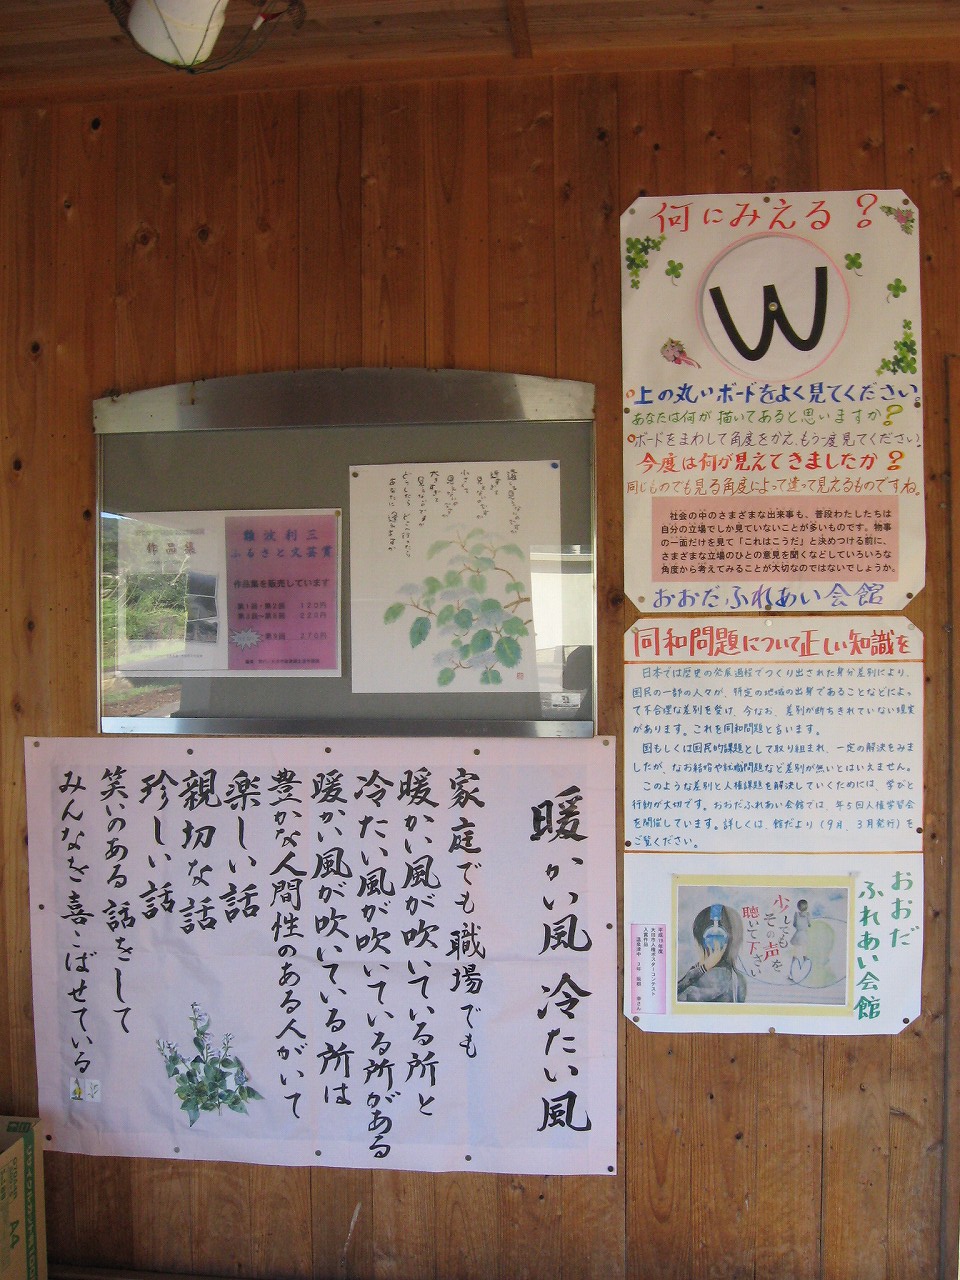 何にみえる?
W
上の丸いボードをよく見てください。
あなたは何が描いてあると思いますか?
ボードをまわして角度をかえ、もう一度見てください。
今度は何が見えてきましたか?
同じものでも見る角度によって違って見えるものですね。
社会の中のさまざまな出来事も、普段わたしたちは
自分の立場でしか見ていないことが多いものです。物事
の一面だけを見て「これはこうだ」と決めつける前に、
さまざまな立場のひとの意見を聞くなどしていろいろな
角度から考えてみることが大切なのではないでしょうか。
おおだふれあい会館
同和問題について正しい知識を
日本では歴史の発展過程でつくり出された身分差別により、
国民の一部の人々が、特定の地域の出身であることなどによっ
て不合理な差別を受け、今なお、差別が断ちきれていない現実
があります。これを同和問題と言います。
国もしくは国民的課題として取り組まれ、一定の解決をみま
したが、なお結婚や就職問題など差別が無いとはいえません。
このような差別と人権課題を解決していくためには、学びと
行動が大切です。おおだふれあい会館では、年5回人権学習会
を開催しています。詳しくは、館だより(9月、3月発行)を
ご覧ください。
おおだ
ふれあい会館
少しでも
その声を
聴いて下さい
平成19年度
大田市人権ポスターコンテスト
入賞作品
作品集
難波利三
ふるさと文芸賞
作品集を販売しています
第1回・第2回 120円
270円
暖かい風 冷たい風
家庭でも職場でも
暖かい風が吹いている所と
冷たい風が吹いている所がある
暖かい風が吹いている所は
豊かな人間性のある人がいて
楽しい話
親切な話
珍しい話
笑いのある話をして
みんなを喜こばせている
A4